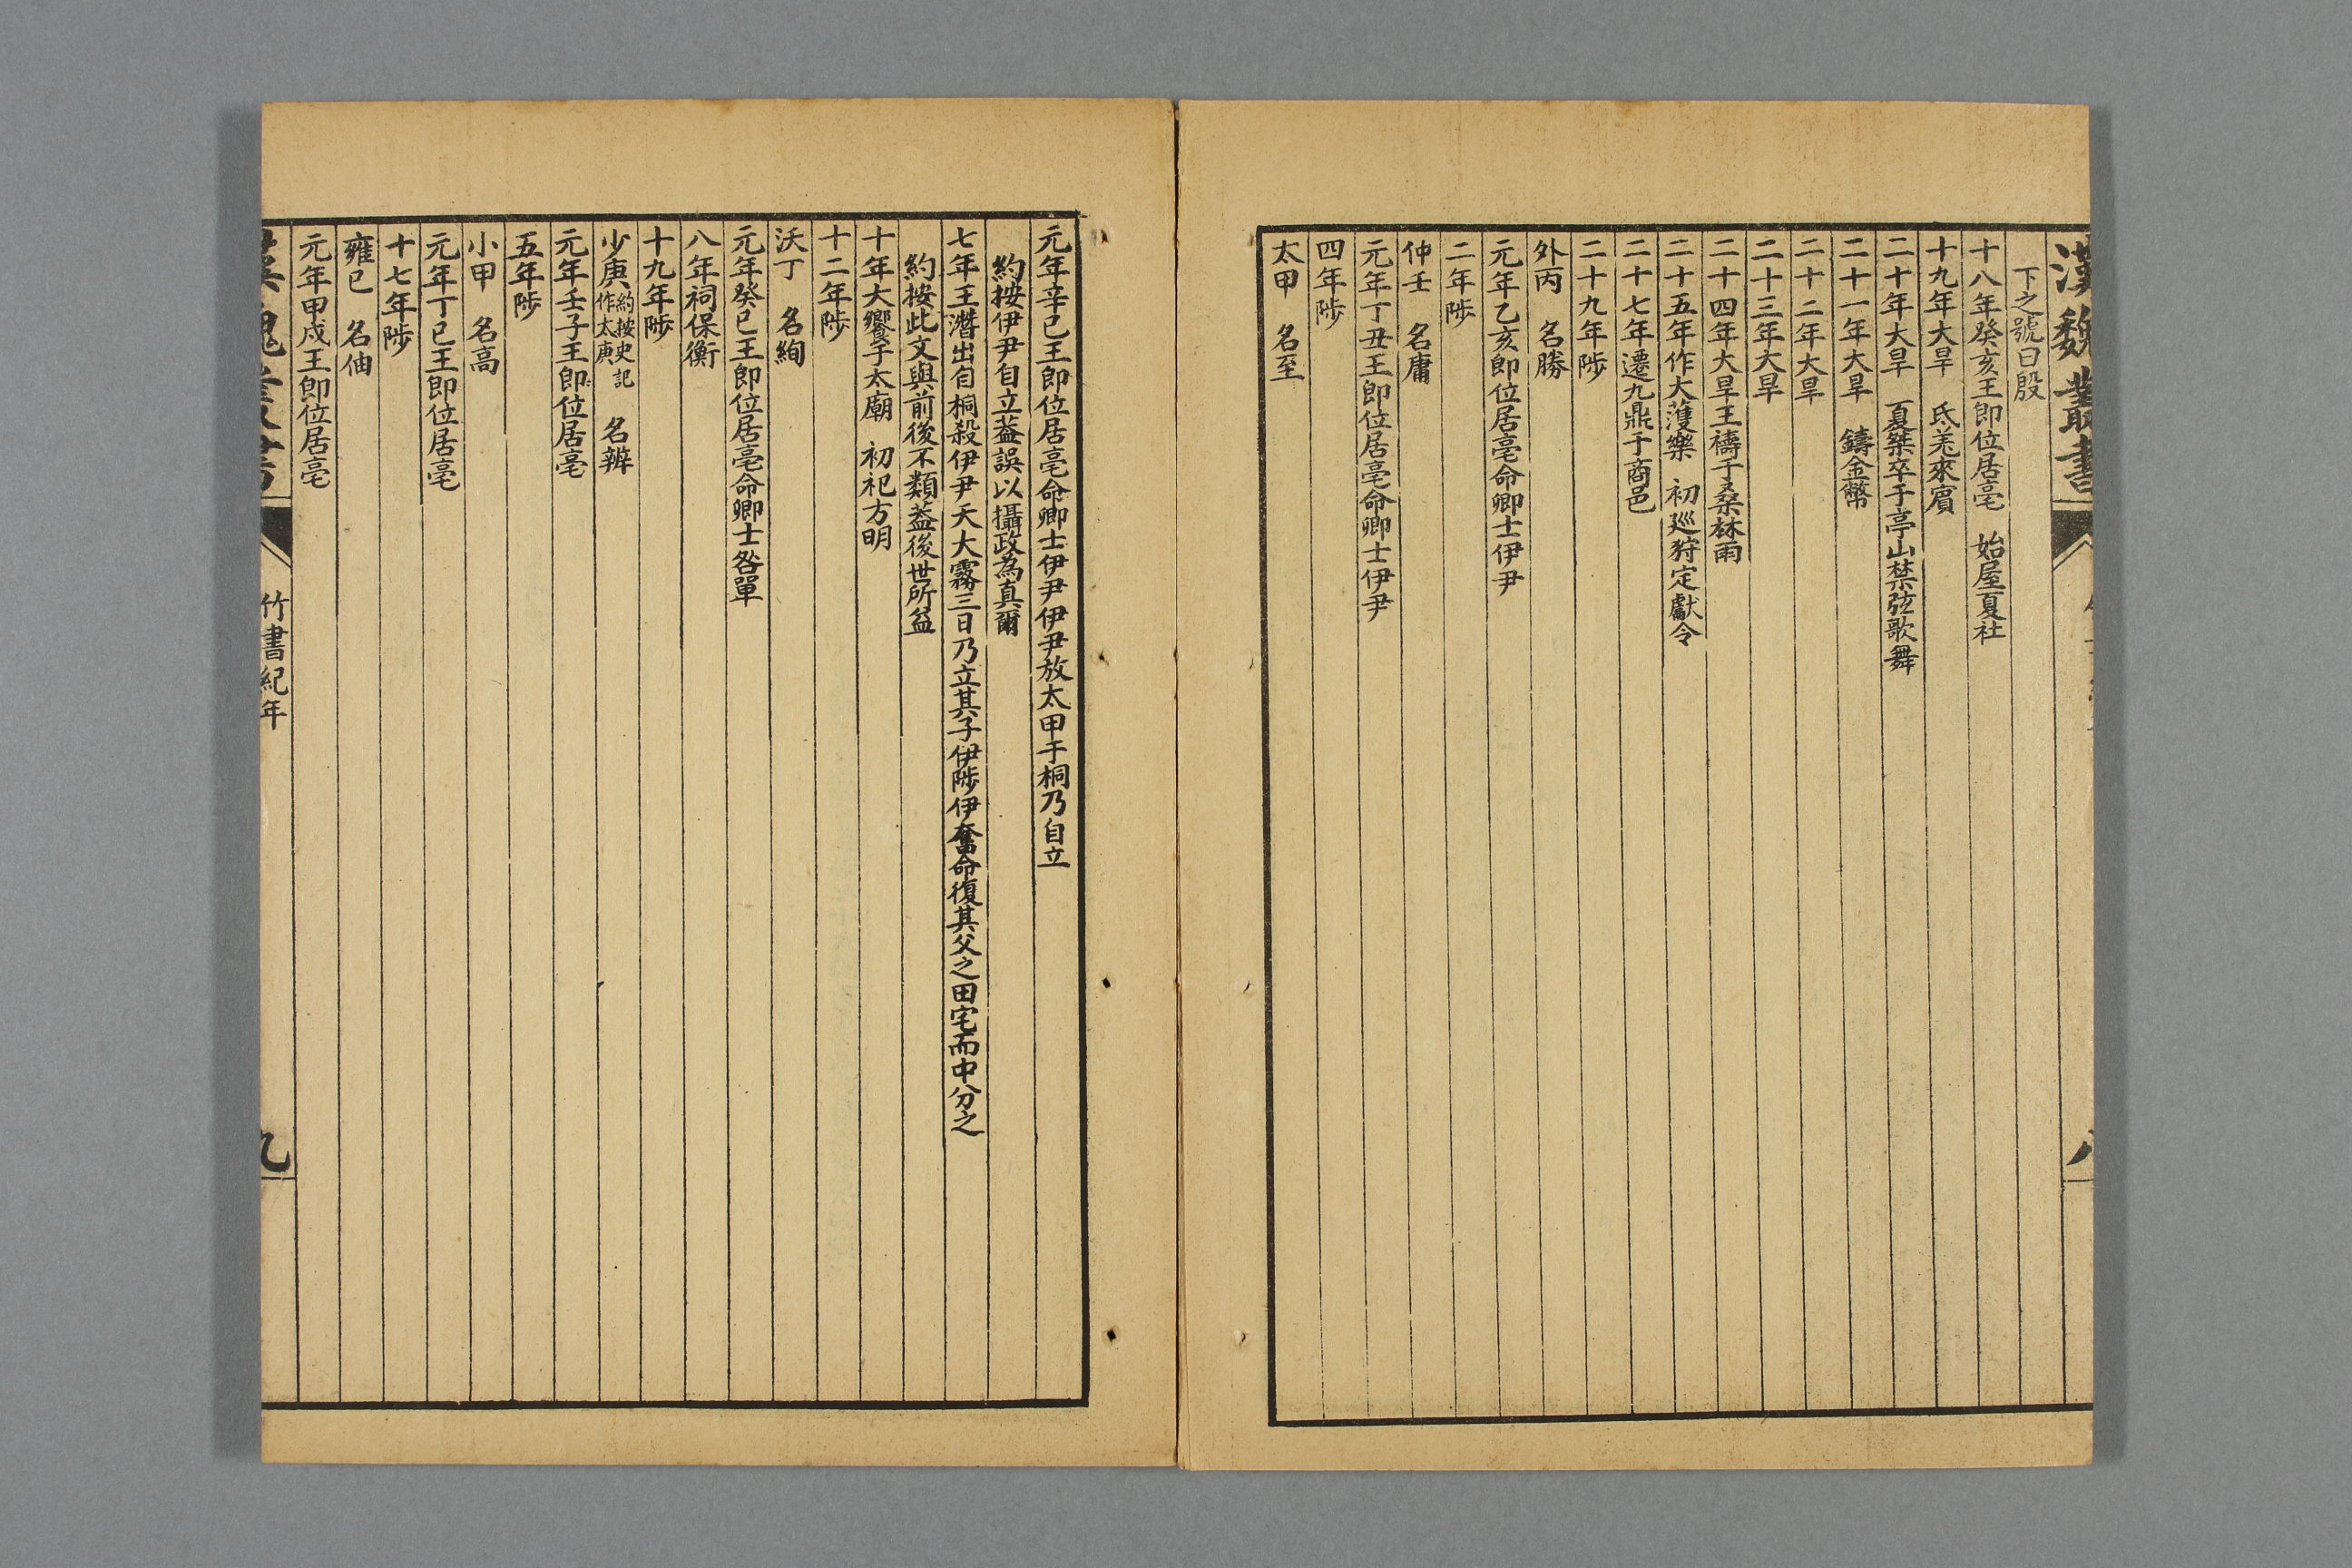 漢魏叢書
下之號曰殷
十八年癸亥王即位居亳　始屋夏社
十九年大旱　氐羌來賓
二十年大旱　夏桀卒于亭山禁弦歌舞
二十一年大旱　鑄金幣
二十二年大旱
二十三年大旱
二十四年大旱王禱于桑林雨
二十五年作大濩樂　初巡狩定獻令
二十七年遷九鼎于商邑
二十九年陟
外丙　名勝
元年乙亥即位居亳命卿士伊尹
二年陟
仲壬　名庸
元年丁丑王即位居亳命卿士伊尹
四年陟
太甲　名至
元年辛巳王即位居亳命卿士伊尹伊尹放太甲于桐乃自立
約按伊尹自立蓋誤以攝政為真爾
七年王潛出自桐殺伊尹天大霧三日乃立其子伊陟伊奮命復其父之田宅而中分之
約按此文與前後不類蓋後世所益
十年大饗于太廟　初祀方明
十二年陟
沃丁　名絢
元年癸巳王即位居亳命卿士咎單
八年祠保衡
十九年陟
少庚約按史記作太庚　名辨
元年壬子王即位居亳
五年陟
小甲　名高
元年丁巳王即位居亳
十七年陟
雍己　名伷
元年甲戌王即位居亳
漢魏叢書
竹書紀年
九